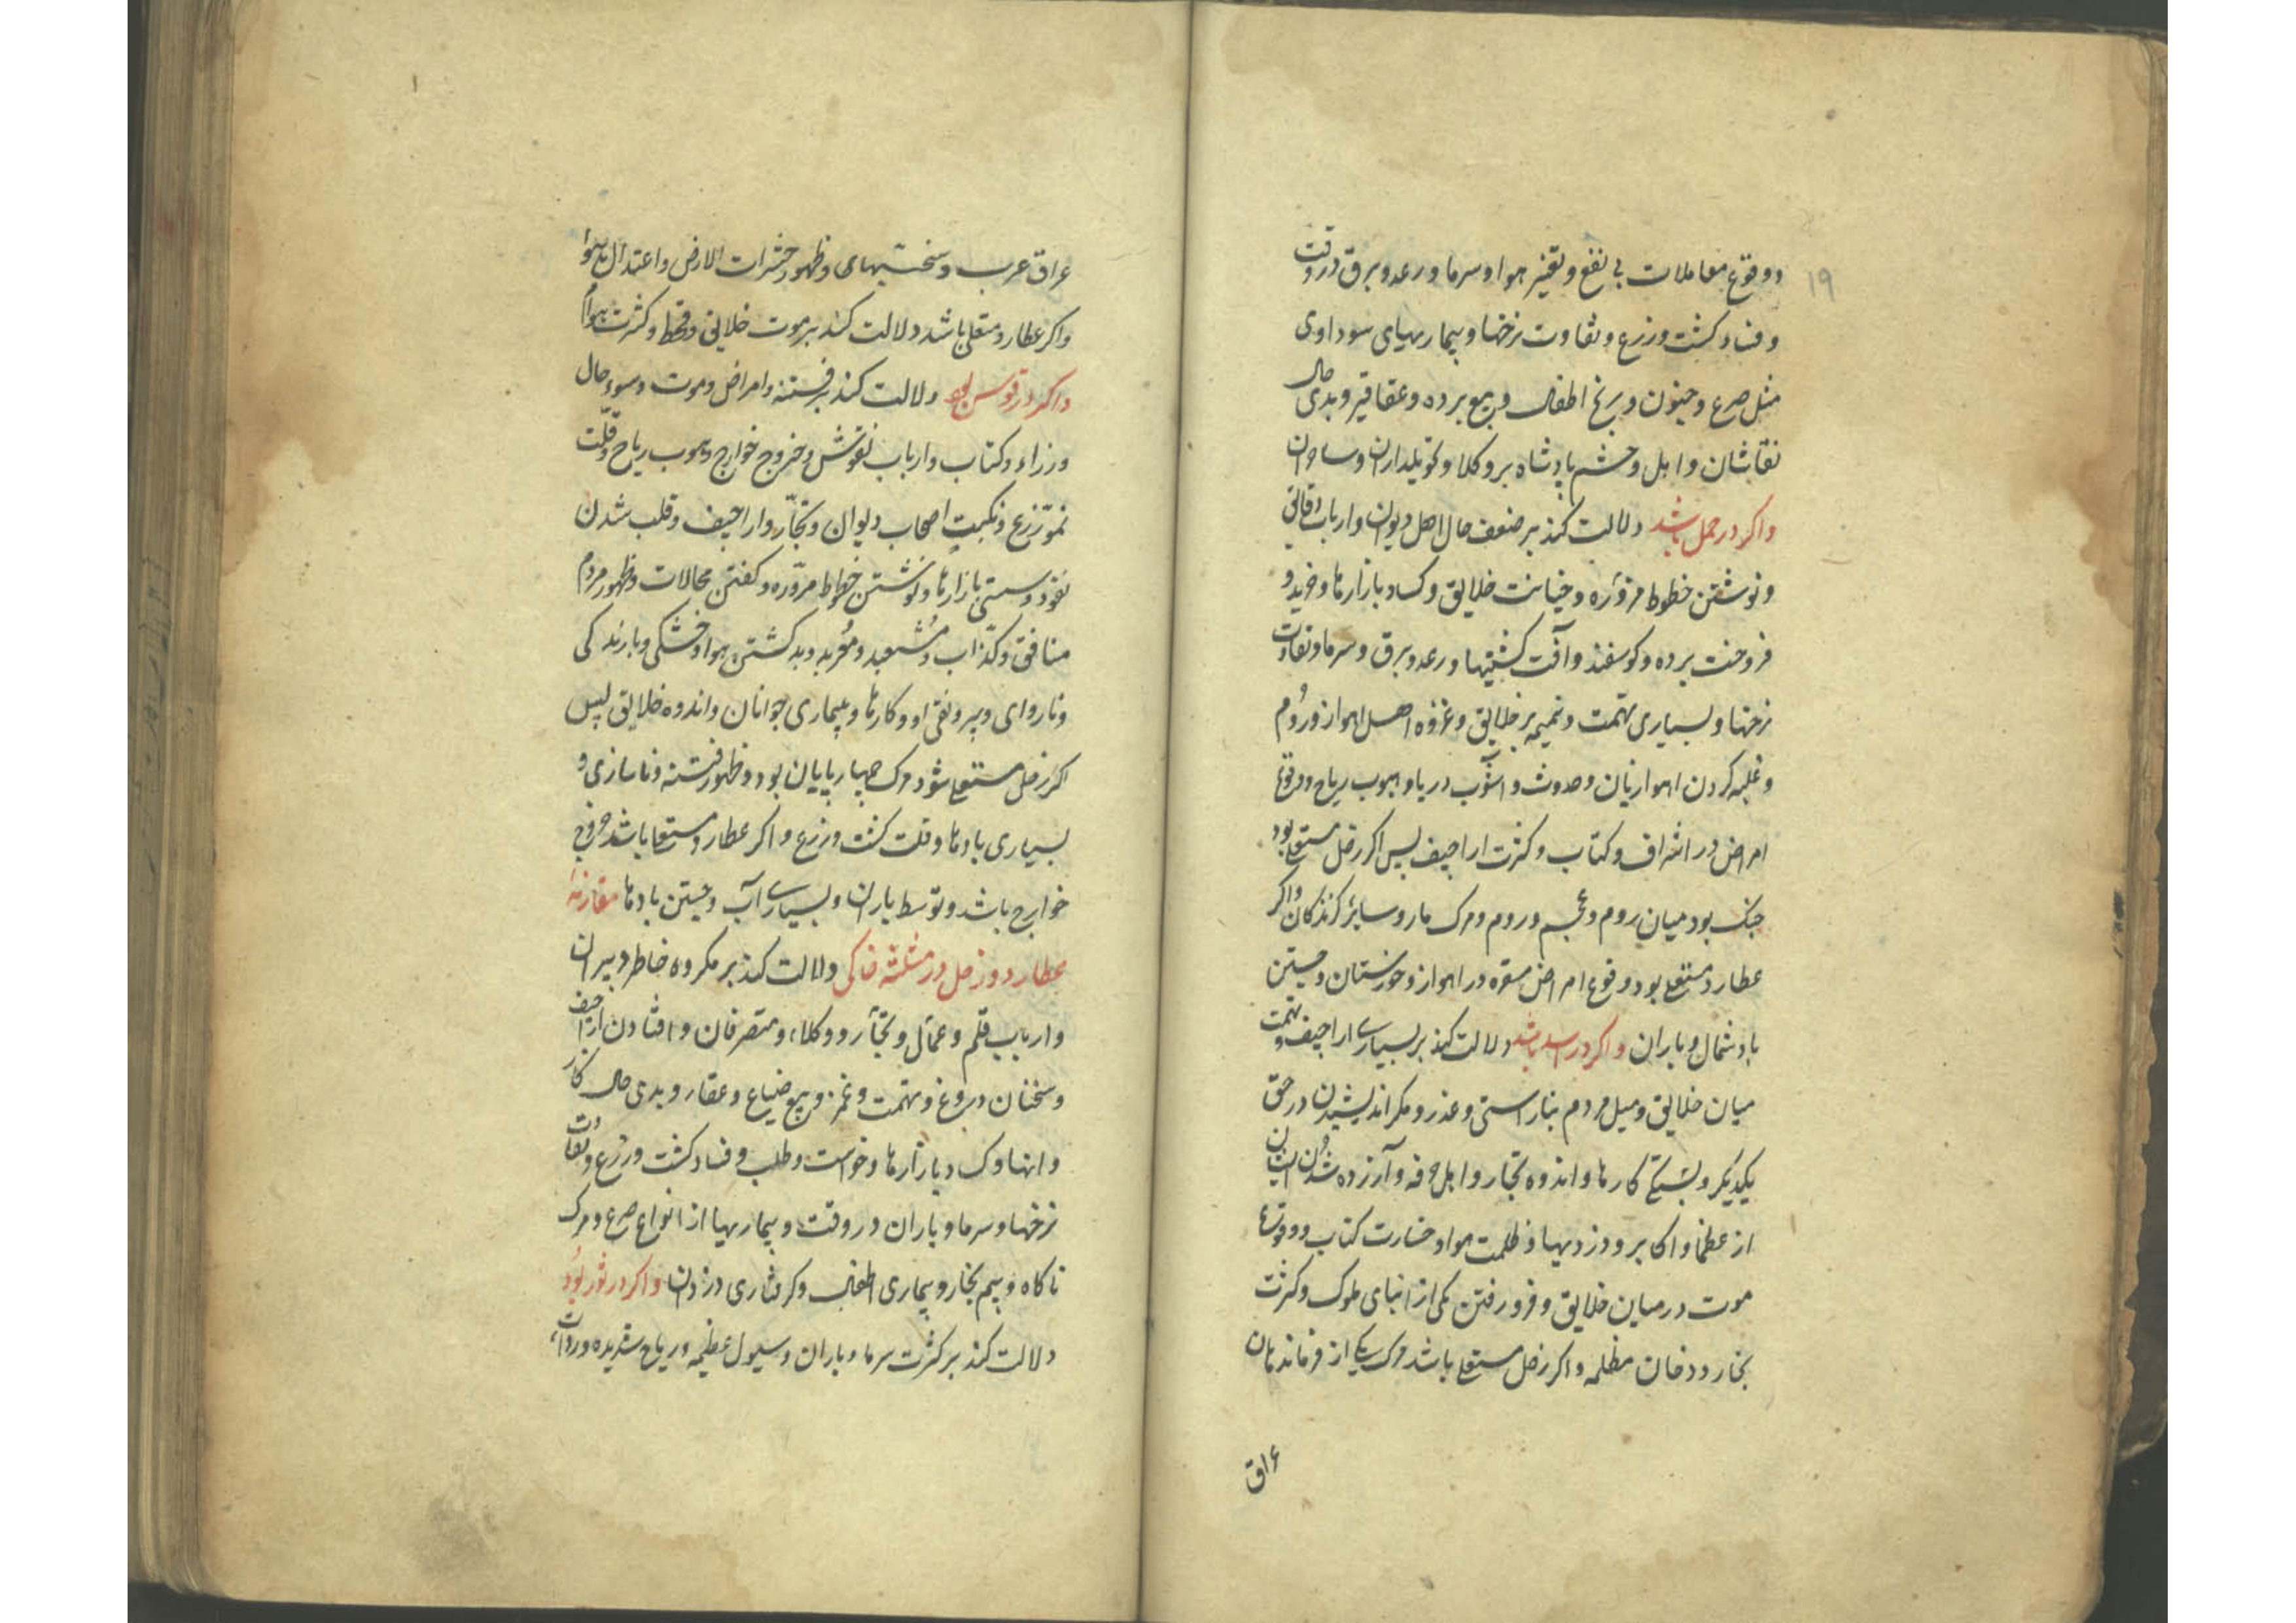 ۱۹
و وقوع معاملات بی نفع و تغیر هوا و سرما و رعد و برق در وقت
و فساد کشت و زرع و تفاوت نرخها و بیماریهای سوداوی
مثل صرع و جنون و رنج اطفال و بیع برده و عقاقیر و بدی حال
نقاشان و اهل و حشم پادشاه بر وکلا و تحویلداران و
واکر در حمل باشد دلالت کند بر ضعف حال اهل دیوان و ارباب دقانی
و نوشتن خطوط مزوّره و خیانت خلایق و کساد بازارها و خرید و
فروخت برده و کوسفند و آفت کشتیها و رعد و برق و سرما و تفاوت
نرخها و بسیاری تهمت و نمیمه بر خلایق و غزوه اهل اهواز و روم
و غلبه کردن اهوازیان و حدوث و آشوب دریا و هبوب ریاح و وقوع
امراض در اشراف و کتاب و کثرت اراجیف پس اکر زحل مستعلی بود
جنک بود میان روم و عجم و روم و مرک مار و سایر کزندکان واکر
عطارد مستعلی بود وقوع امراض در اهواز و خوزستان و جستن
باد شمال و باران واکر در اسد باشد دلالت کند بر بسیاری اراجیف و تهمت
میان خلایق و میل مردم بناراستی و غدر و مکر اندیشیدن در حق
یکدیکر و بستکی کارها و اندوه تجار و اهل حرفه و آزرده شدن ایشان
از عظما و اکابر و دزدیها و ظلمت هوا و خسارت کتاب و وقوع
موت در میان خلایق و فرو رفتن یکی از ابنای ملوک و کثرت
بخار و دخان مظلمه و اکر زحل مستعلی باشد مرک یکی از فرماندهان
عراق
عراق عرب و سختیهای و ظهور حشرات الارض و اعتدال هوا
واکر عطارد مستعلی باشد دلالت کند بر موت خلایق و قحط و کثرت هوام
واکر در قوس بود دلالت کند بر فتنه و امراض و موت و سوء حال
وزراء و کتاب و ارباب نقوش و خروج خوارج و هبوب ریاح و قلّت
نموّ زرع و نکبت اصحاب دیوان و تجّار و اراجیف و قلب شدن
نقود و سستی بازارها و نوشتن خطوط مزوّره و کفتن محالات و ظهور مردم
منافق و کذّاب و مشعبد و معربد و بد کشتن هوا و خشکی و بارندکی
و ناروای و کارها و بیماری جوانان و اندوه خلایق پس
اکر زحل مستعلی شود مرک چهارپایان بود و ظهور فتنه و ناسازی و
بسیاری بادها و قلت کشت و زرع و اکر عطارد مستعلی باشد خروج
خوارج باشد و توسط باران و بسیاری آب و جستن بادها مقارنهٔ
عطارد و زحل در مثلثه خاکی دلالت کند بر مکروه خاطر دبیران
و ارباب قلم و عمّال و تجّار و وکلاء و متصرفان و افتادن اراجیف
و سخنان دروغ و تهمت و غمز و بیع ضیاع و عقار و بدی حال
و کساد بازارها و خواست و طلب و فساد کشت و زرع و تفاوت
نرخها و سرما و باران در وقت و بیماریها از انواع صرع و مرک
ناکاه و بیم بخار و بیماری اطفال و کرفتاری دزدان واکر در ثور بود
دلالت کند بر کثرت سرما و باران و سیول عظیمه و ریاح شدیده